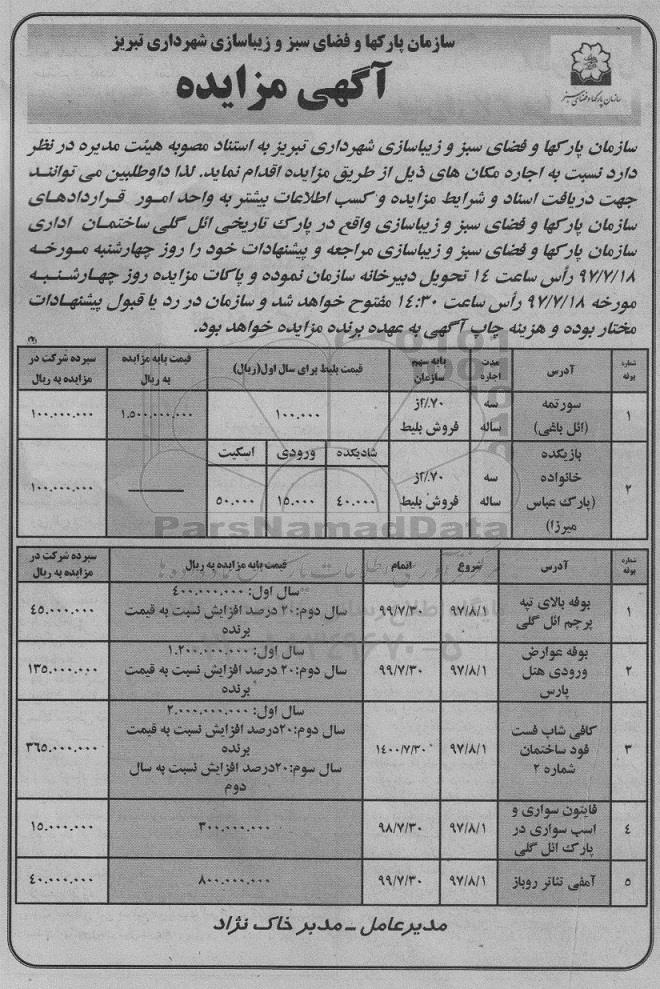 سازمان پارکها و فضای سبز و زیباسازی شهرداری تبریز
آگهی مزایده
سازمان پارکها و فضای سبز
سازمان پارکها و فضای سبز و زیباسازی شهرداری تبریز به استناد مصوبه هیئت مدیره در نظر
دارد نسبت به اجاره مکان های ذیل از طریق مزایده اقدام نماید. لذا داوطلبین می توانند
جهت دریافت اسناد و شرایط مزایده و کسب اطلاعات بیشتر به واحد امور قراردادهای
سازمان پارکها و فضای سبز و زیباسازی واقع در پارک تاریخی ائل گلی ساختمان اداری
سازمان پارکها و فضای سبز و زیباسازی مراجعه و پیشنهادات خود را روز چهارشنبه مورخه
۹۷/۷/۱۸ رأس ساعت ۱۴ تحویل دبیرخانه سازمان نموده و پاکات مزایده روز چهارشنبه
مورخه ۹۷/۷/۱۸ رأس ساعت ۱۴:۳۰ مفتوح خواهد شد و سازمان در رد یا قبول پیشنهادات
مختار بوده و هزینه چاپ آگهی به عهده برنده مزایده خواهد بود.
شماره بوفه | آدرس | مدت اجاره | پایه سهم سازمان | قیمت بلیط برای سال اول(ریال) | قیمت پایه مزایده به ریال | سپرده شرکت در مزایده به ریال
۱ | سورتمه (ائل باغی) | سه ساله | ۷۰٪از فروش بلیط | ۱۰۰.۰۰۰ | ۱.۵۰۰.۰۰۰.۰۰۰ | ۱۰۰.۰۰۰.۰۰۰
۲ | بازیکده خانواده (پارک عباس میرزا) | سه ساله | ۷۰٪از فروش بلیط | شادیکده ۴۰.۰۰۰ | ورودی ۱۵.۰۰۰ | اسکیت ۵۰.۰۰۰ | ۱۰۰.۰۰۰.۰۰۰
ParsNamadData
شماره بوفه | آدرس | شروع | اتمام | قیمت پایه مزایده به ریال | سپرده شرکت در مزایده به ریال
۱ | بوفه بالای تپه پرچم ائل گلی | ۹۷/۸/۱ | ۹۹/۷/۳۰ | سال اول: ۴۰۰.۰۰۰.۰۰۰ سال دوم:۲۰ درصد افزایش نسبت به قیمت برنده | ۴۵.۰۰۰.۰۰۰
۲ | بوفه عوارض ورودی هتل پارس | ۹۷/۸/۱ | ۹۹/۷/۳۰ | سال اول: ۱.۲۰۰.۰۰۰.۰۰۰ سال دوم:۲۰ درصد افزایش نسبت به قیمت برنده | ۱۳۵.۰۰۰.۰۰۰
۳ | کافی شاپ فست فود ساختمان شماره ۲ | ۹۷/۸/۱ | ۱۴۰۰/۷/۳۰ | سال اول: ۲.۰۰۰.۰۰۰.۰۰۰ سال دوم:۲۰درصد افزایش نسبت به قیمت برنده سال سوم:۲۰درصد افزایش نسبت به سال دوم | ۳۶۵.۰۰۰.۰۰۰
۴ | فایتون سواری و اسب سواری در پارک ائل گلی | ۹۷/۸/۱ | ۹۸/۷/۳۰ | ۳۰۰.۰۰۰.۰۰۰ | ۱۵.۰۰۰.۰۰۰
۵ | آمفی تئاتر روباز | ۹۷/۸/۱ | ۹۹/۷/۳۰ | ۸۰۰.۰۰۰.۰۰۰ | ۴۰.۰۰۰.۰۰۰
مدیرعامل - مدبر خاک نژاد